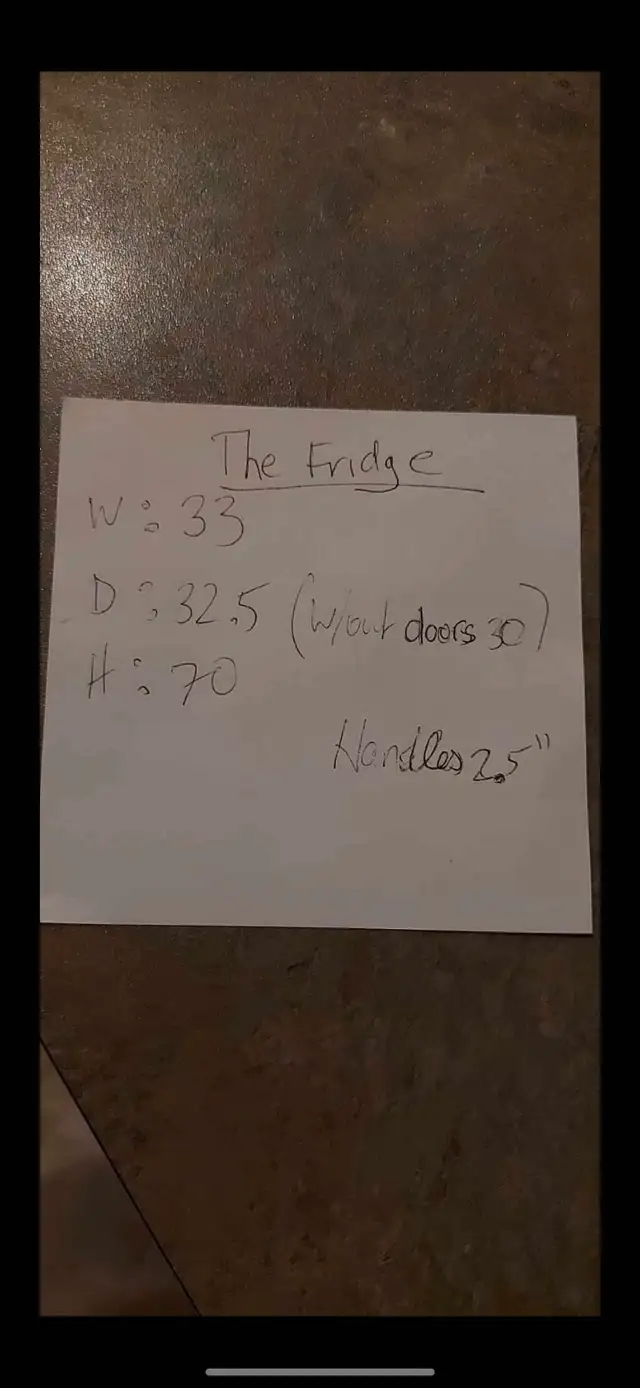 The Fridge
W: 33
D: 32.5 (w/out doors 30)
H: 70
Handles 2.5"